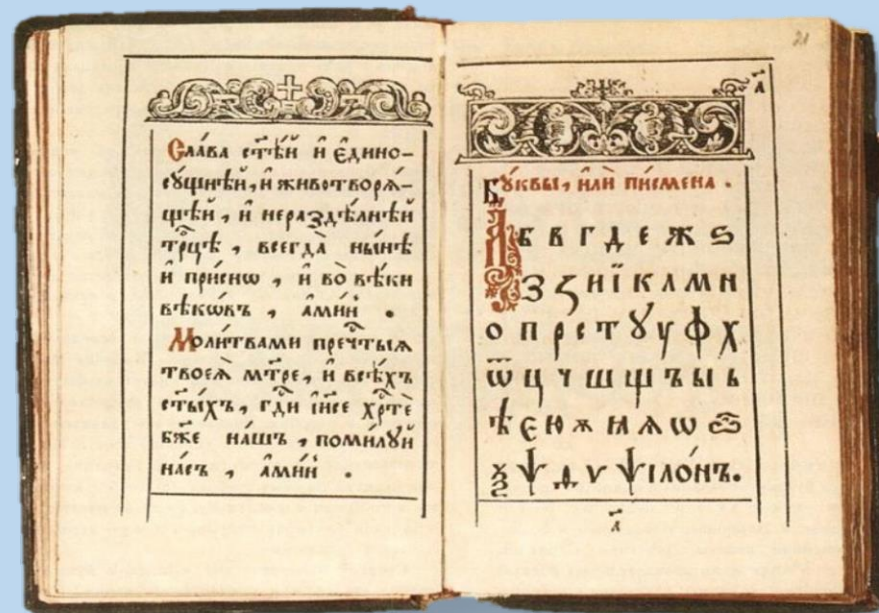 Сла́ва ст҃ѣ́й и҆ є҆дино-
су́щнѣй, и҆ животворѧ́-
щѣй, и҆ нераздѣ́лнѣй
трⷪ҇цѣ, всегда̀ ны́нѣ
и҆ при́снѡ, и҆ во̀ вѣ́ки
вѣкѡ́въ, а҆ми́нь.
Моли́твами пречⷭ҇тыѧ
твоеѧ̀ мт҃ре, и҆ всѣ́хъ
ст҃ы́хъ, гдⷭ҇и і҆и҃се хрⷭ҇тѐ
бж҃е на́шъ, поми́лꙋй
на́съ, а҆ми́нь.
21
а҃
Бу́квы, и҆лѝ пи́смена.
А Б В Г Д Е Ж Ѕ
З Ꙁ И Ї К Л М Н
О П Р С Т Ꙋ У Ф Х
Ѿ Ц Ч Ш Щ Ъ Ы Ь
Ѣ Є Ю Ѫ Ꙗ Ѧ Ѡ Ѽ
Ѯ Ѱ Ѳ Ѵ Ѱїло́нъ.
а҃